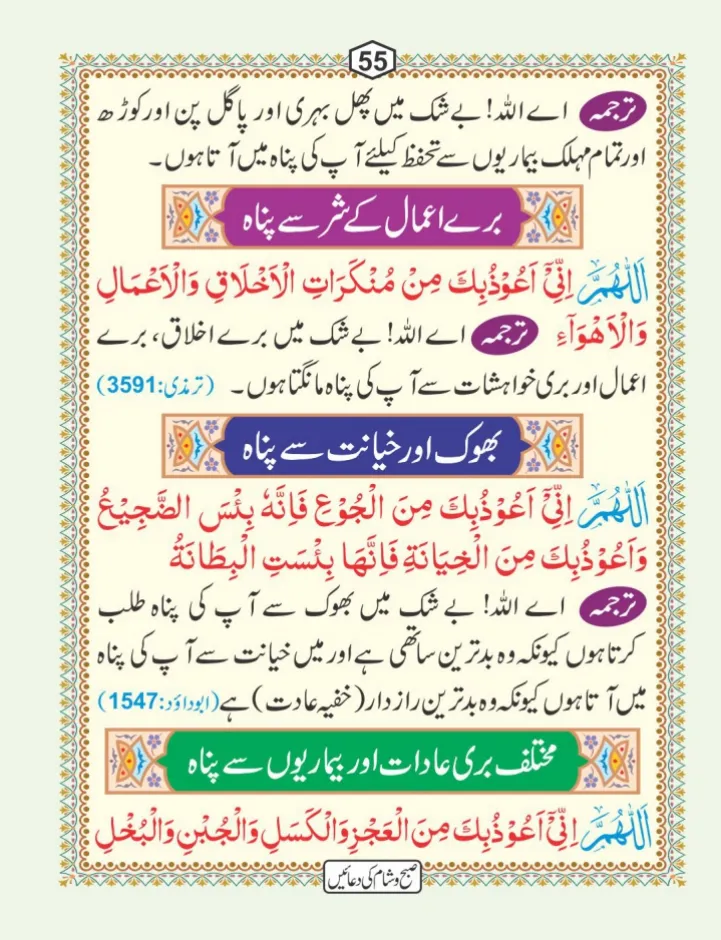 55
ترجمہ اے اللہ! بے شک میں پھل بہری اور پاگل پن اور کوڑھ
اور تمام مہلک بیماریوں سے تحفظ کیلئے آپ کی پناہ میں آتا ہوں۔
برے اعمال کے شر سے پناہ
اَللّٰهُمَّ اِنِّیْۤ اَعُوْذُبِكَ مِنْ مُنْكَرَاتِ الْاَخْلَاقِ وَالْاَعْمَالِ
وَالْاَهْوَآءِ ترجمہ اے اللہ! بے شک میں برے اخلاق، برے
اعمال اور بری خواہشات سے آپ کی پناہ مانگتا ہوں۔ (ترمذی:3591)
بھوک اور خیانت سے پناہ
اَللّٰهُمَّ اِنِّیْۤ اَعُوْذُبِكَ مِنَ الْجُوْعِ فَاِنَّهٗ بِئْسَ الضَّجِیْعُ
وَاَعُوْذُبِكَ مِنَ الْخِیَانَةِ فَاِنَّهَا بِئْسَتِ الْبِطَانَةُ
ترجمہ اے اللہ! بے شک میں بھوک سے آپ کی پناہ طلب
کرتا ہوں کیونکہ وہ بدترین ساتھی ہے اور میں خیانت سے آپ کی پناہ
میں آتا ہوں کیونکہ وہ بدترین رازدار (خفیہ عادت) ہے (ابوداؤد:1547)
مختلف بری عادات اور بیماریوں سے پناہ
اَللّٰهُمَّ اِنِّیْۤ اَعُوْذُبِكَ مِنَ الْعَجْزِ وَالْكَسَلِ وَالْجُبْنِ وَالْبُخْلِ
صبح و شام کی دعائیں